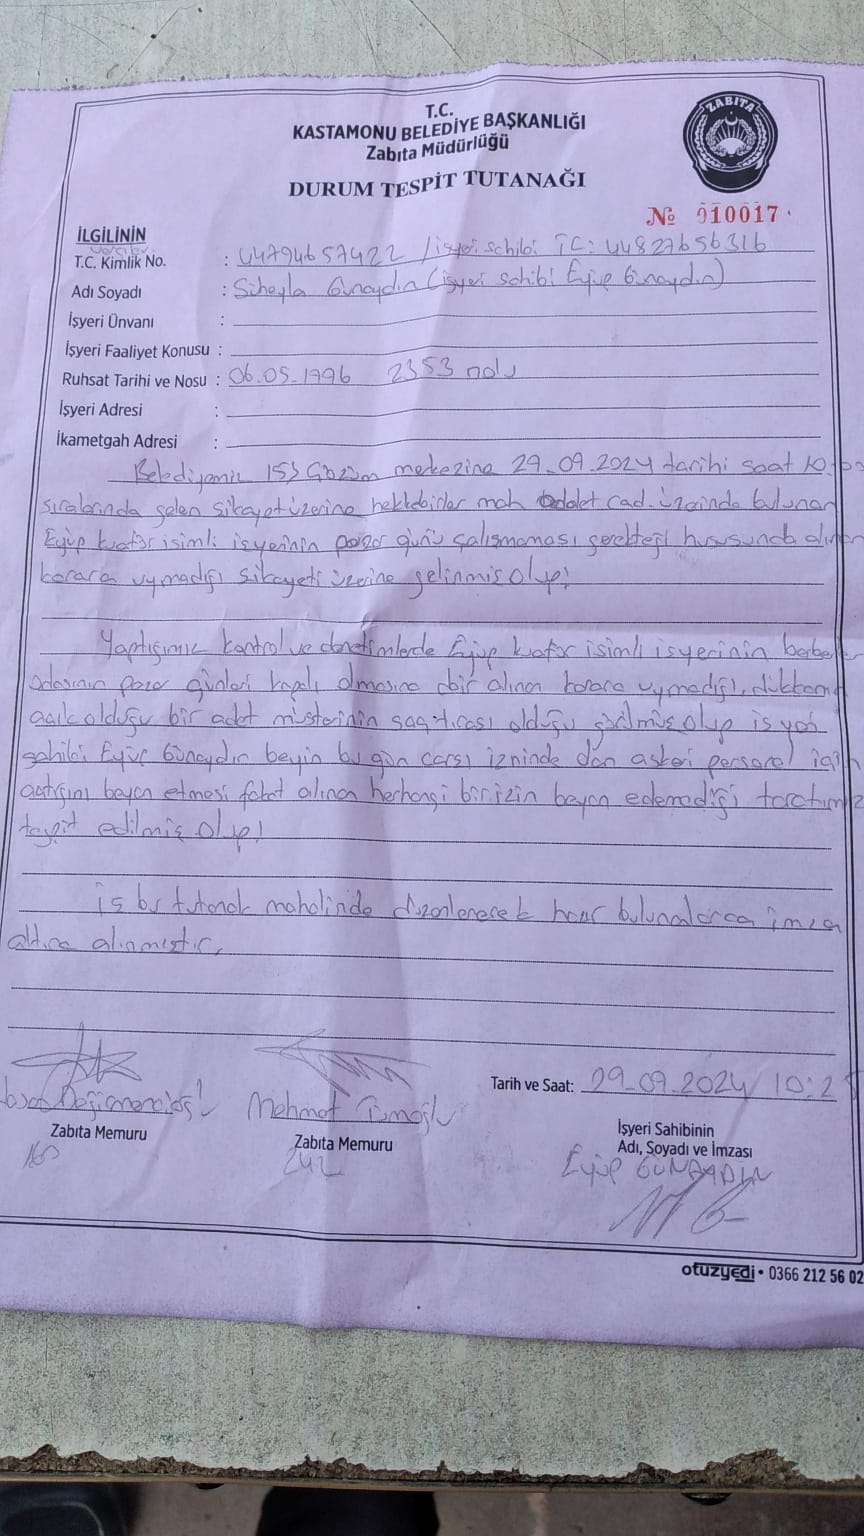 T.C.
KASTAMONU BELEDİYE BAŞKANLIĞI
Zabıta Müdürlüğü
DURUM TESPİT TUTANAĞI
ZABITA
№ 010017
İLGİLİNİN
T.C. Kimlik No. : 44794657422 / işyeri sahibi TC: 44827656316
Adı Soyadı : Süheyla Günaydın (işyeri sahibi Eyüp Günaydın)
İşyeri Ünvanı :
İşyeri Faaliyet Konusu :
Ruhsat Tarihi ve Nosu : 06.05.1996 2353 nolu
İşyeri Adresi :
İkametgah Adresi :
Belediyemiz 153 Çözüm merkezine 29.09.2024 tarihi saat
sıralarında gelen şikayet üzerine hekkebirler mah cad. üzerinde bulunan
Eyüp kuaför isimli işyerinin pazar günü çalışmaması gerektiği hususunda alınan
karara uymadığı şikayeti üzerine gelinmiş olup!
Yaptığımız kontrol ve denetimlerde Eyüp kuaför isimli işyerinin berber
odasının pazar günleri kapalı olmasına dair alınan karara uymadığı, dükkanın
açık olduğu bir adet müşterinin saç tıraşı olduğu görülmüş olup iş yeri
sahibi Eyüp Günaydın beyin bu gün çarşı izninde olan askeri personel için
açtığını beyan etmesi fakat alınan herhangi bir izin beyan edemediği tarafımız
tespit edilmiş olup!
İş bu tutanak mahalinde düzenlenerek hazır bulunalarca imza
altına alınmıştır.
Tarih ve Saat: 29.09.2024 10:2
Değirmencioğlu
Zabıta Memuru
Mehmet
Zabıta Memuru
242
İşyeri Sahibinin
Adı, Soyadı ve İmzası
Eyüp GÜNAYDIN
otuzyedi • 0366 212 56 02